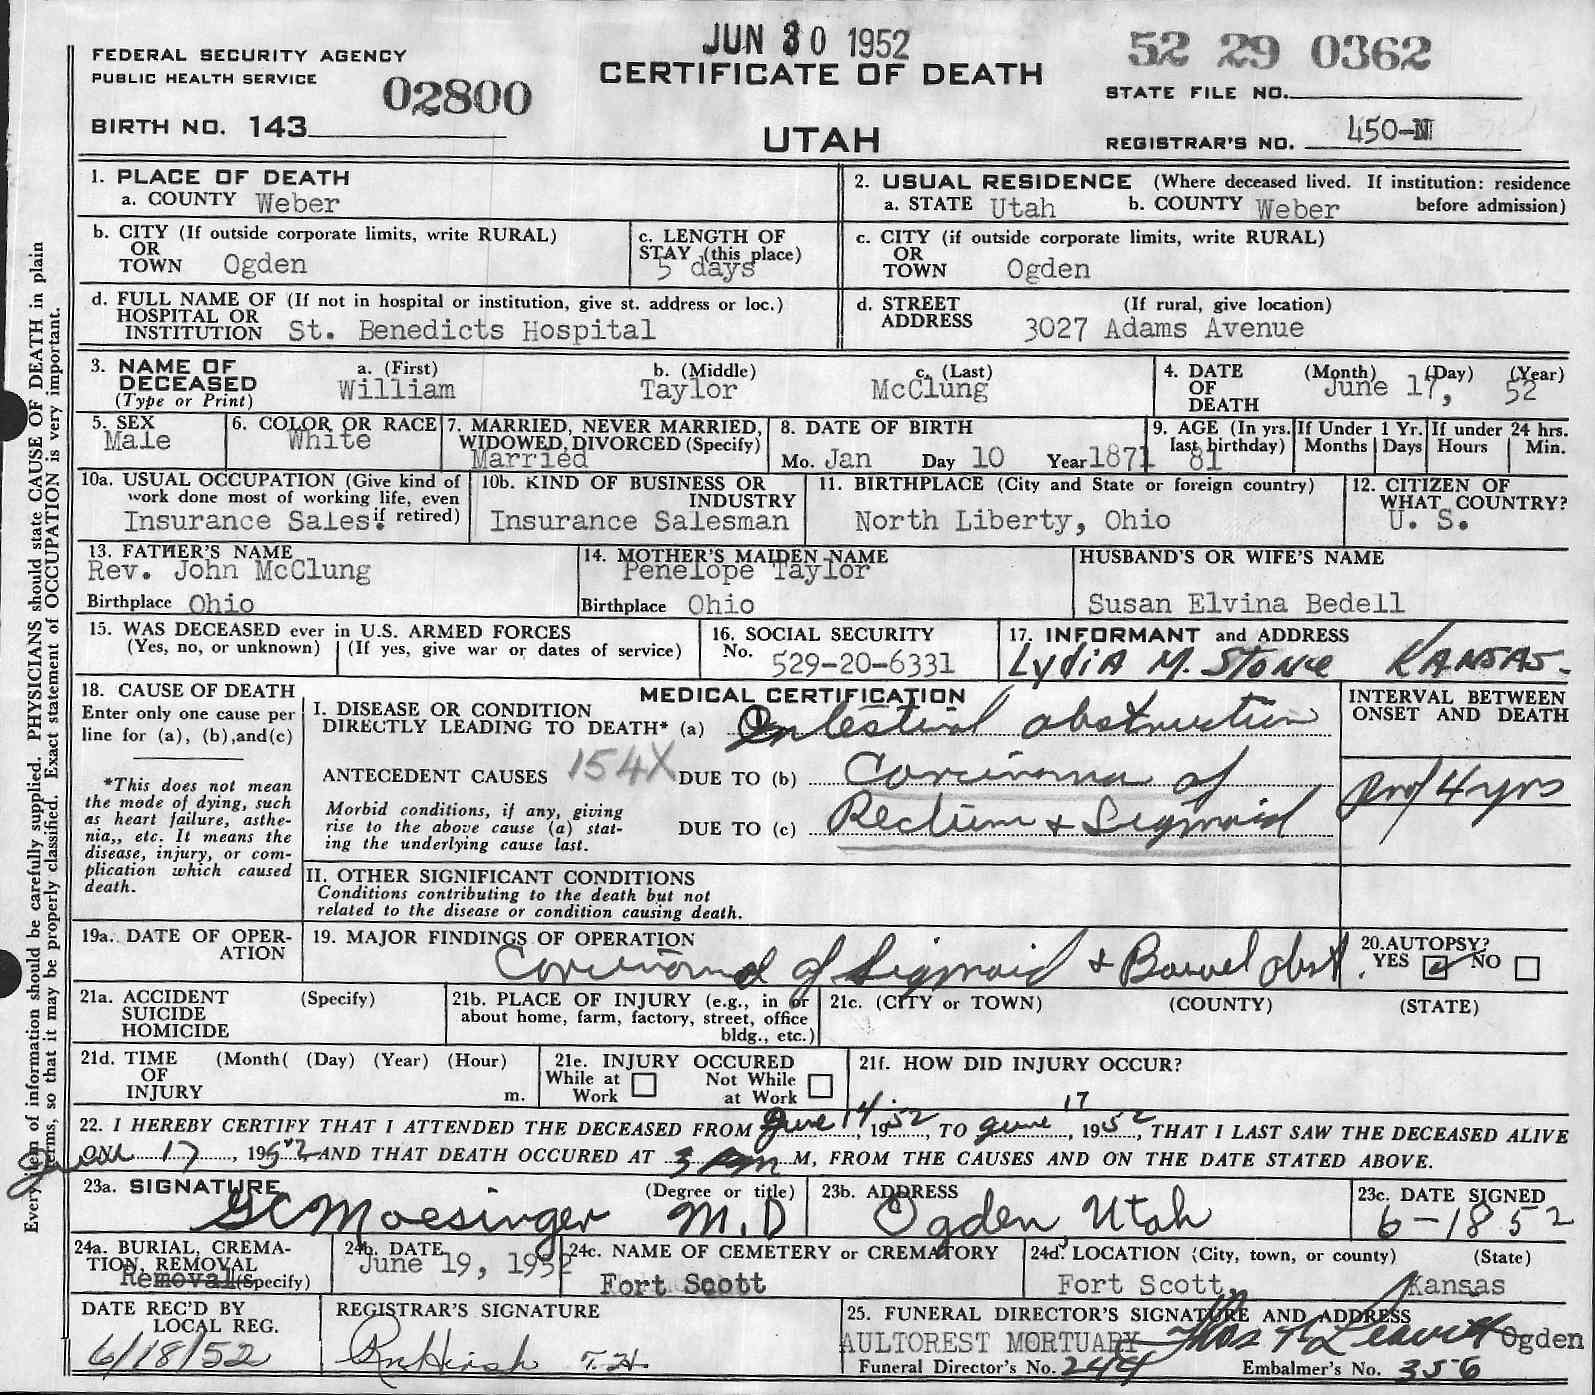 JUN 30 1952
52 29 0362
FEDERAL SECURITY AGENCY
PUBLIC HEALTH SERVICE
02800
CERTIFICATE OF DEATH
STATE FILE NO.
BIRTH NO. 143
UTAH
REGISTRAR'S NO. 450-
1. PLACE OF DEATH
a. COUNTY Weber
2. USUAL RESIDENCE (Where deceased lived. If institution: residence before admission)
a. STATE Utah b. COUNTY Weber
b. CITY (If outside corporate limits, write RURAL)
OR
TOWN Ogden
c. LENGTH OF
STAY (this place)
5 days
c. CITY (if outside corporate limits, write RURAL)
OR
TOWN Ogden
d. FULL NAME OF (If not in hospital or institution, give st. address or loc.)
HOSPITAL OR
INSTITUTION St. Benedicts Hospital
d. STREET (If rural, give location)
ADDRESS 3027 Adams Avenue
3. NAME OF
DECEASED
(Type or Print)
a. (First) b. (Middle) c. (Last)
William Taylor McClung
4. DATE
OF
DEATH
(Month) (Day) (Year)
June 17, 52
5. SEX
Male
6. COLOR OR RACE
White
7. MARRIED, NEVER MARRIED,
WIDOWED, DIVORCED (Specify)
Married
8. DATE OF BIRTH
Mo. Jan Day 10 Year 1871
9. AGE (In yrs.
last birthday)
81
If Under 1 Yr.
Months Days
If under 24 hrs.
Hours Min.
10a. USUAL OCCUPATION (Give kind of
work done most of working life, even
if retired)
Insurance Sales.
10b. KIND OF BUSINESS OR
INDUSTRY
Insurance Salesman
11. BIRTHPLACE (City and State or foreign country)
North Liberty, Ohio
12. CITIZEN OF
WHAT COUNTRY?
U. S.
13. FATHER'S NAME
Rev. John McClung
Birthplace Ohio
14. MOTHER'S MAIDEN NAME
Penelope Taylor
Birthplace Ohio
HUSBAND'S OR WIFE'S NAME
Susan Elvina Bedell
15. WAS DECEASED ever in U.S. ARMED FORCES
(Yes, no, or unknown) (If yes, give war or dates of service)
16. SOCIAL SECURITY
No. 529-20-6331
17. INFORMANT and ADDRESS
Lydia M. Stone KANSAS.
18. CAUSE OF DEATH
Enter only one cause per
line for (a), (b),and(c)
*This does not mean
the mode of dying, such
as heart failure, asthe-
nia,, etc. It means the
disease, injury, or com-
plication which caused
death.
MEDICAL CERTIFICATION
I. DISEASE OR CONDITION
DIRECTLY LEADING TO DEATH* (a) Intestinal obstruction
ANTECEDENT CAUSES 154X DUE TO (b) Carcinoma of
Morbid conditions, if any, giving
rise to the above cause (a) stat-
ing the underlying cause last.
DUE TO (c) Rectum + Sigmoid
INTERVAL BETWEEN
ONSET AND DEATH
4 yrs
II. OTHER SIGNIFICANT CONDITIONS
Conditions contributing to the death but not
related to the disease or condition causing death.
19a. DATE OF OPER-
ATION
19. MAJOR FINDINGS OF OPERATION
Carcinoma of Sigmoid + Bowel obst.
20.AUTOPSY?
YES NO
21a. ACCIDENT (Specify)
SUICIDE
HOMICIDE
21b. PLACE OF INJURY (e.g., in or
about home, farm, factory, street, office
bldg., etc.)
21c. (CITY or TOWN) (COUNTY) (STATE)
21d. TIME (Month( (Day) (Year) (Hour)
OF
INJURY m.
21e. INJURY OCCURED
While at Work Not While at Work
21f. HOW DID INJURY OCCUR?
22. I HEREBY CERTIFY THAT I ATTENDED THE DECEASED FROM June 14, 1952, TO June 17, 1952, THAT I LAST SAW THE DECEASED ALIVE
ON June 17, 1952, AND THAT DEATH OCCURED AT 3 pm M, FROM THE CAUSES AND ON THE DATE STATED ABOVE.
23a. SIGNATURE (Degree or title)
GC Moesinger M.D
23b. ADDRESS
Ogden Utah
23c. DATE SIGNED
6-18 52
24a. BURIAL, CREMA-
TION, REMOVAL
Removal (Specify)
24b. DATE
June 19, 1952
24c. NAME OF CEMETERY or CREMATORY
Fort Scott
24d. LOCATION (City, town, or county) (State)
Fort Scott, Kansas
DATE REC'D BY
LOCAL REG.
6/18/52
REGISTRAR'S SIGNATURE
25. FUNERAL DIRECTOR'S SIGNATURE AND ADDRESS
AULTOREST MORTUARY Leavitt Ogden
Funeral Director's No. 244 Embalmer's No. 356
Every item of information should be carefully supplied. PHYSICIANS should state CAUSE OF DEATH in plain
terms, so that it may be properly classified. Exact statement of OCCUPATION is very important.